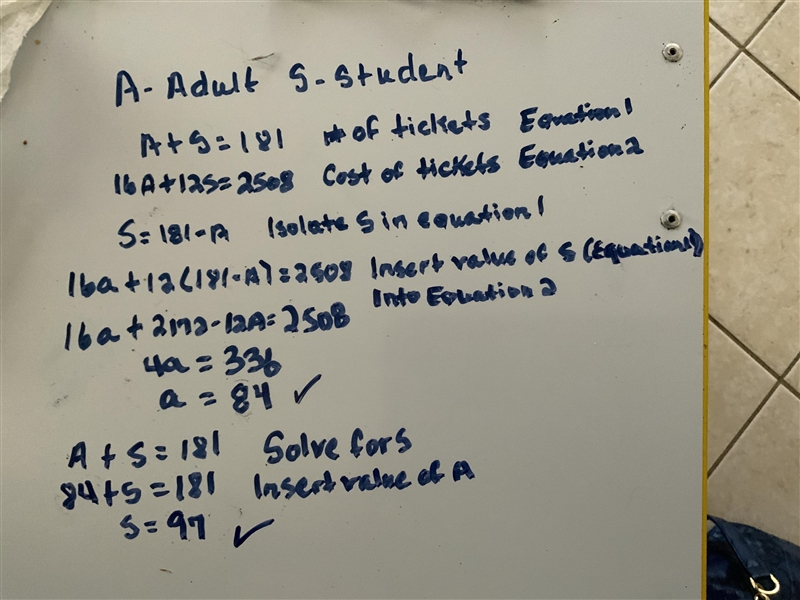 A - Adult S - Student
A + S = 181 # of tickets Equation 1
16A + 12S = 2508 Cost of tickets Equation 2
S = 181 - A Isolate S in equation 1
16a + 12(181 - A) = 2508 Insert value of S (Equation 1)
Into Equation 2
16a + 2172 - 12A = 2508
4a = 336
a = 84 ✓
A + S = 181 Solve for S
84 + S = 181 Insert value of A
S = 97 ✓